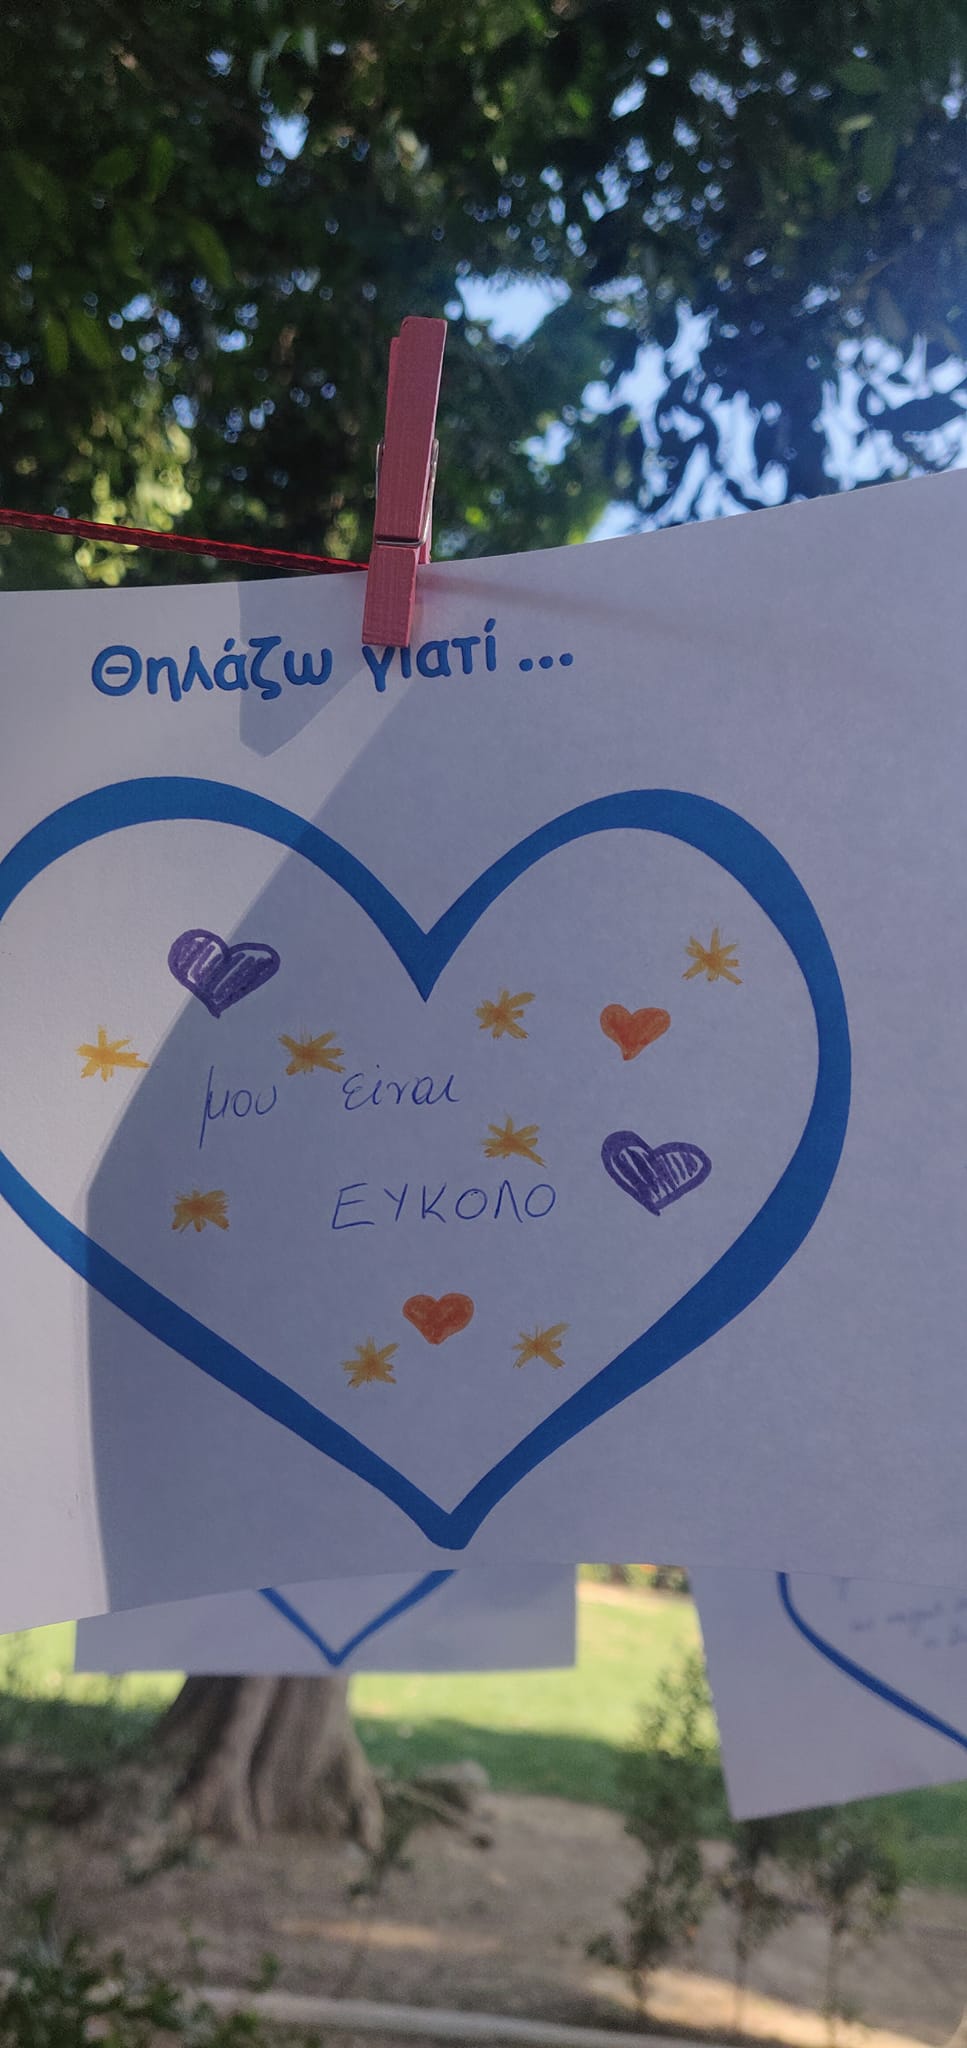 Θηλάζω γιατί...
μου είναι
ΕΥΚΟΛΟ